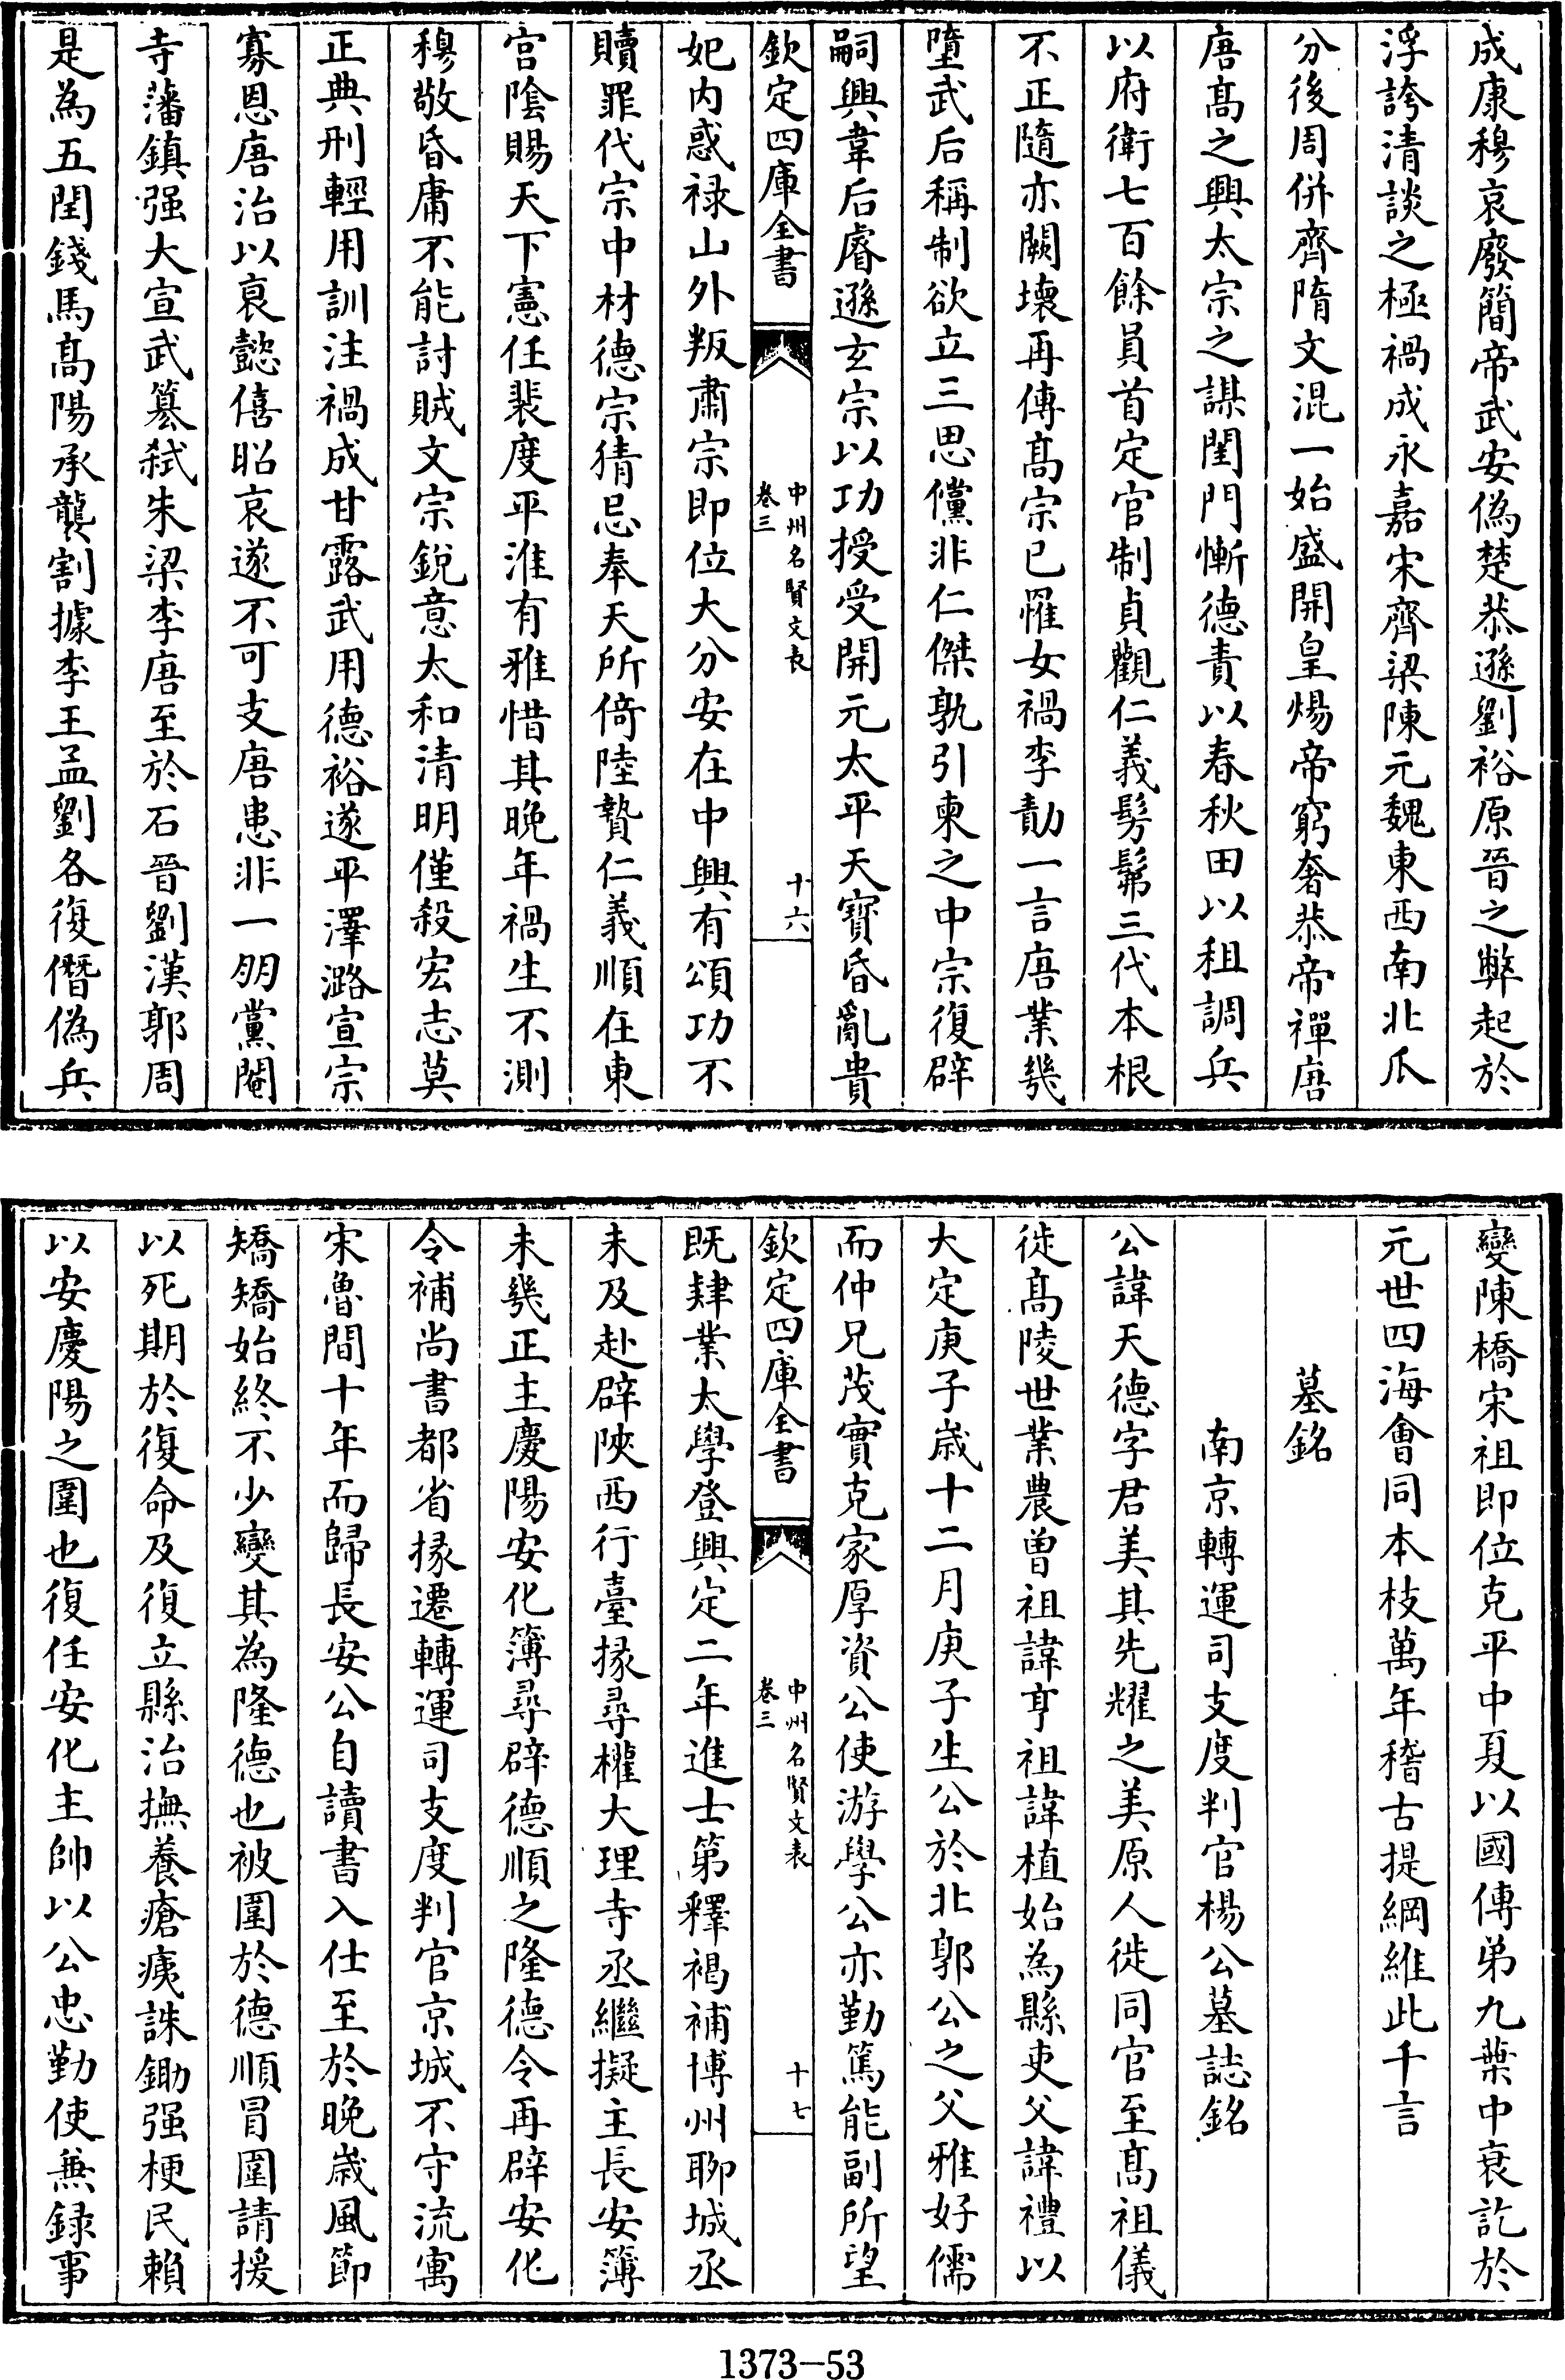 成康穆哀廢簡帝武安偽楚恭遜劉裕原晉之弊起於
浮誇清談之極禍成永嘉宋齊梁陳元魏東西南北瓜
分後周併齊隋文混一始盛開皇煬帝窮奢恭帝禪唐
唐髙之興太宗之謀閨門慚德責以春秋田以租調兵
以府衛七百餘員首定官制貞觀仁義髣髴三代本根
不正隨亦闕壞再傳髙宗已罹女禍李勣一言唐業幾
墮武后稱制欲立三思儻非仁傑孰引柬之中宗復辟
嗣興韋后睿遜玄宗以功授受開元太平天寶昏亂貴
欽定四庫全書
中州名賢文表
卷三
十六
妃内惑禄山外叛肅宗即位大分安在中興有頌功不
贖罪代宗中材德宗猜忌奉天所倚陸贄仁義順在東
宫隂賜天下憲任裴度平淮有雅惜其晚年禍生不測
穆敬昏庸不能討賊文宗鋭意太和清明僅殺宏志莫
正典刑輕用訓注禍成甘露武用德裕遂平澤潞宣宗
寡恩唐治以衰懿僖昭哀遂不可支唐患非一朋黨閹
寺藩鎮强大宣武簒弒朱梁李唐至於石晉劉漢郭周
是為五閏錢馬髙陽承襲割據李王孟劉各復僭偽兵
變陳橋宋祖即位克平中夏以國傳弟九葉中衰訖於
元世四海會同本枝萬年稽古提綱維此千言
墓銘
南京轉運司支度判官楊公墓誌銘
公諱天德字君美其先耀之美原人徙同官至髙祖儀
徙髙陵世業農曽祖諱亨祖諱植始為縣吏父諱禮以
大定庚子歳十二月庚子生公於北郭公之父雅好儒
而仲兄茂實克家厚資公使游學公亦勤篤能副所望
欽定四庫全書
中州名賢文表
卷三
十七
既肄業太學登興定二年進士第釋褐補博州聊城丞
未及赴辟陜西行臺掾尋權大理寺丞繼擬主長安簿
未幾正主慶陽安化簿尋辟德順之隆德令再辟安化
令補尚書都省掾遷轉運司支度判官京城不守流寓
宋魯間十年而歸長安公自讀書入仕至於晚歳風節
矯矯始終不少變其為隆德也被圍於德順冒圍請援
以死期於復命及復立縣治撫養瘡痍誅鋤强梗民賴
以安慶陽之圍也復任安化主帥以公忠勤使兼録事
1373—53